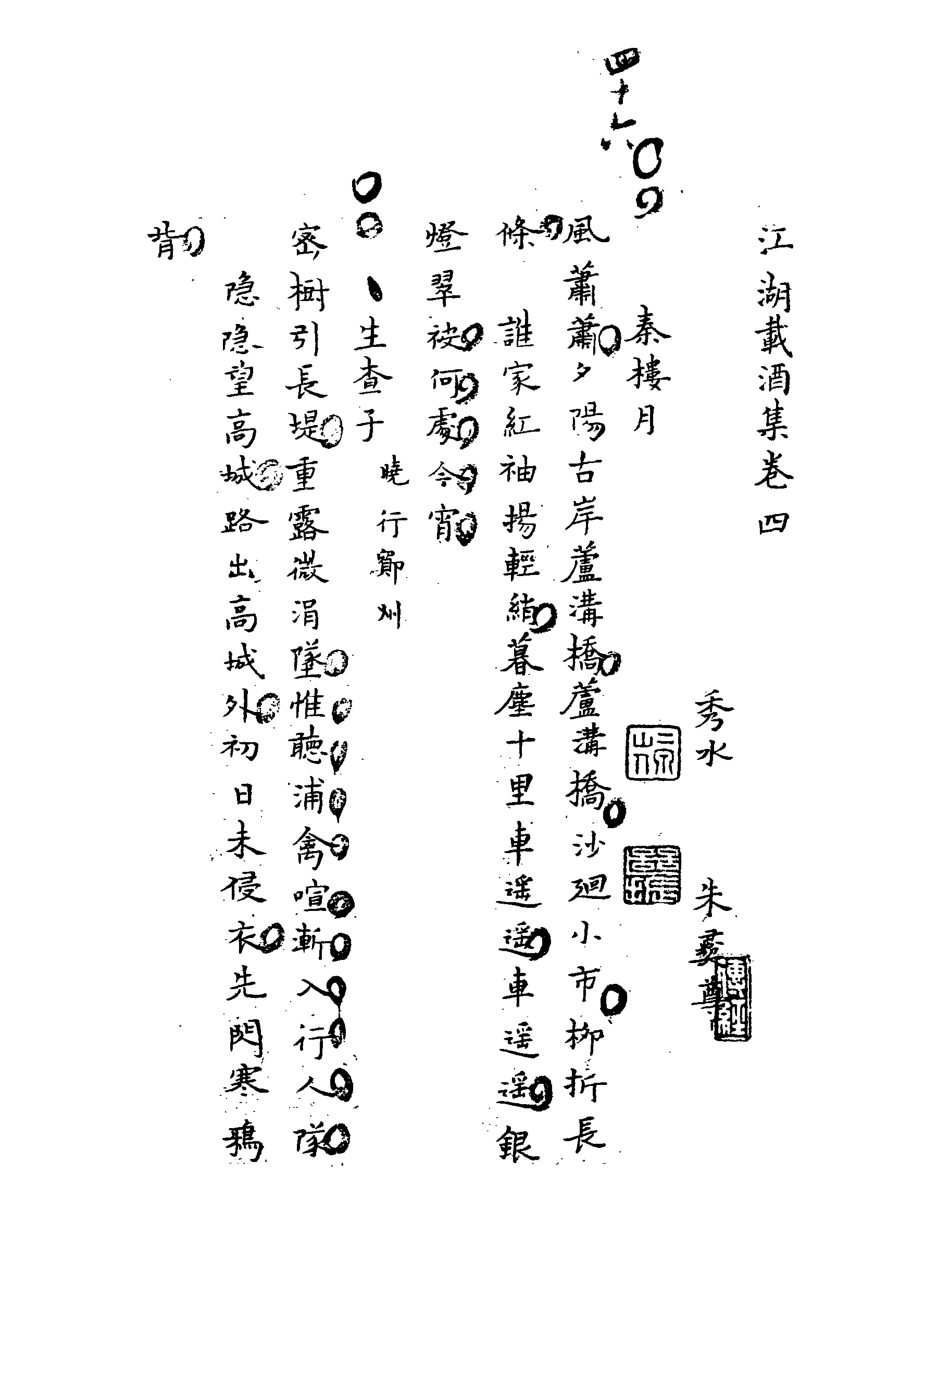 江湖載酒集卷四
秀水 朱彝尊
四十六
秦樓月
風蕭蕭夕陽古岸蘆溝橋蘆溝橋沙廻小市柳折長
條 誰家紅袖揚輕綃暮塵十里車遥遥車遥遥銀
燈翠被何處今宵
生查子 曉行鄚州
密樹引長堤重露微涓墜惟聽浦禽喧漸入行人隊
隐隐望高城路出高城外初日未侵衣先閃寒鴉
背